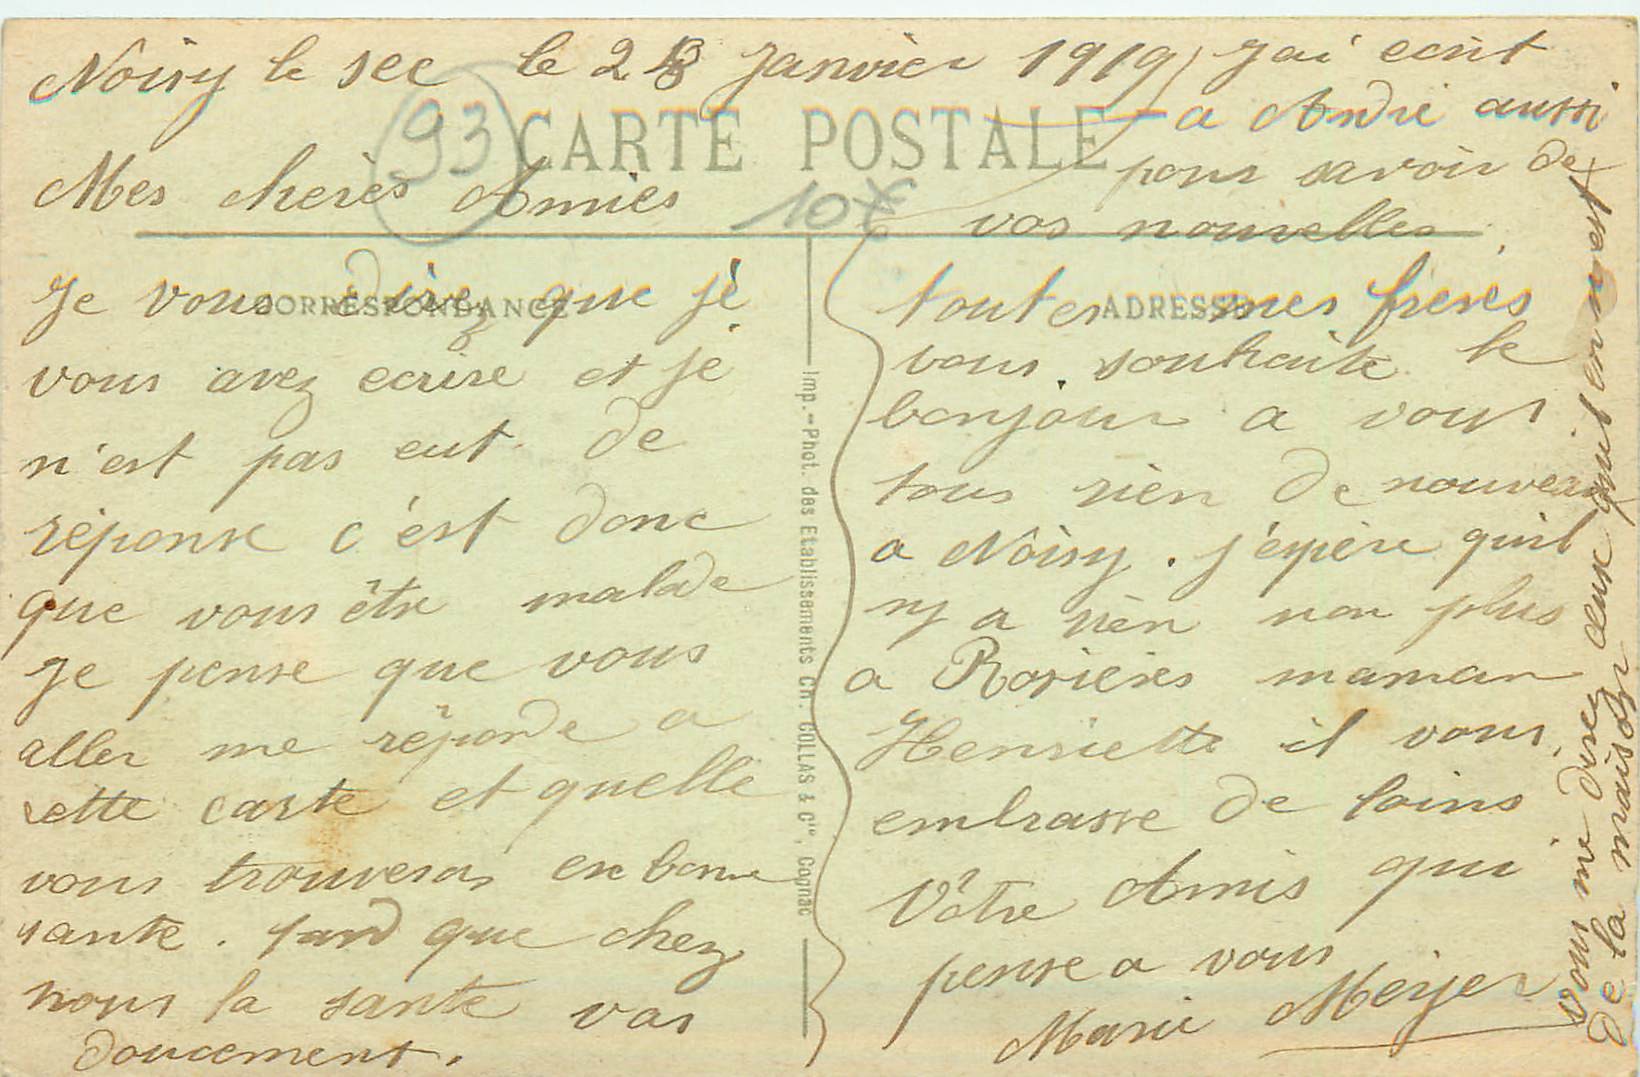 Noisy le sec le 23 Janvier 1919
Mes cherès Amies
Je vous direz que jè
vous avez ecrire et je
n'est pas eut de
réponse c'est donc
que vous être malade
Je pense que vous
aller me réponde a
cette carte et quelle
vous trouveras en bonne
sante. tand que chez
nous la sante vas
doucement.
J'ai ecrit
a André aussi
pour savoir de
vos nouvelles
toutes mes freres
vous souhaite le
bonjour a vous
tous rien de nouveau
a Noisy. j'éspère qu'il
ny a rien non plus
a Rosieres maman
Henriette il vous
embrasse de loins
Vôtre Amis qui
pense a vous
Marie Meyer
vous me direz ceux qu'il en n'est
de la maison
93
10F
CARTE POSTALE
CORRESPONDANCE
ADRESSE
Imp.-Phot. des Etablissements Ch. COLLAS & Cie, Cognac